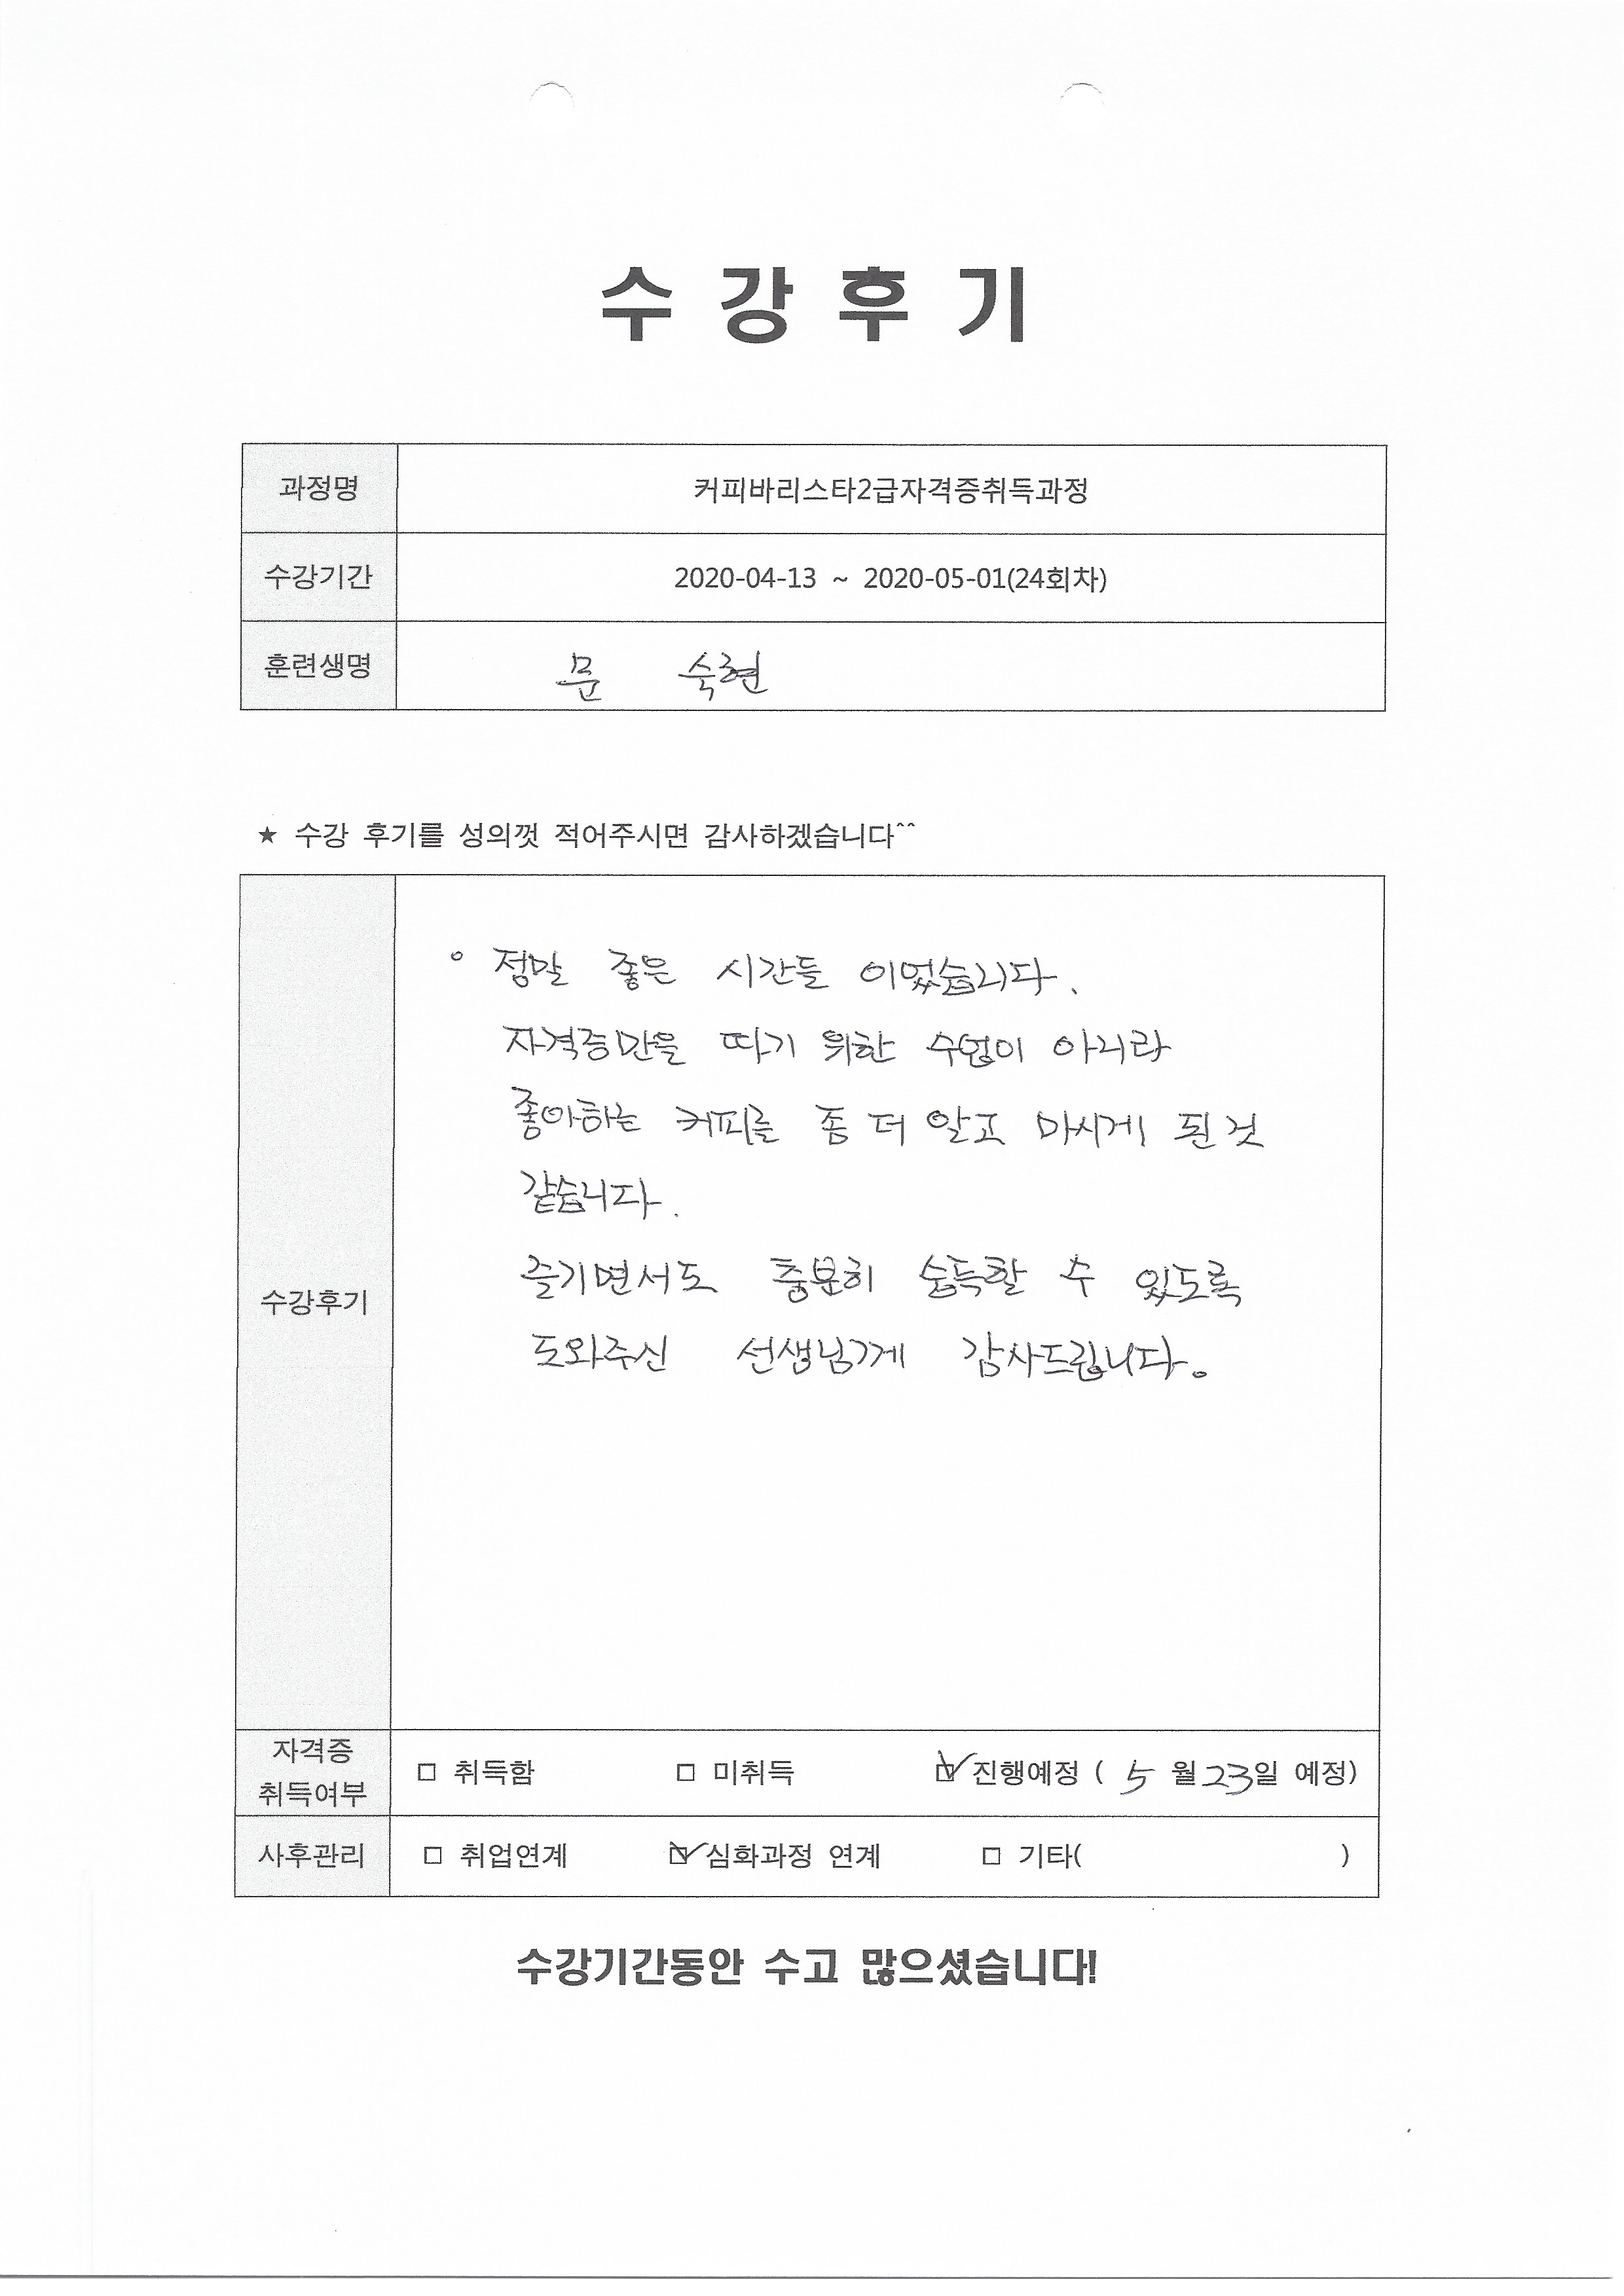 수 강 후 기
과정명 커피바리스타2급자격증취득과정
수강기간 2020-04-13 ~ 2020-05-01(24회차)
훈련생명 문 숙현
★ 수강 후기를 성의껏 적어주시면 감사하겠습니다^^
수강후기
° 정말 좋은 시간들 이었습니다.
자격증만을 따기 위한 수업이 아니라
좋아하는 커피를 좀 더 알고 마시게 된 것
같습니다.
즐기면서도 충분히 습득할 수 있도록
도와주신 선생님께 감사드립니다。
자격증
취득여부
□ 취득함 □ 미취득 ☑ 진행예정 ( 5 월 23일 예정)
사후관리 □ 취업연계 ☑ 심화과정 연계 □ 기타( )
수강기간동안 수고 많으셨습니다!